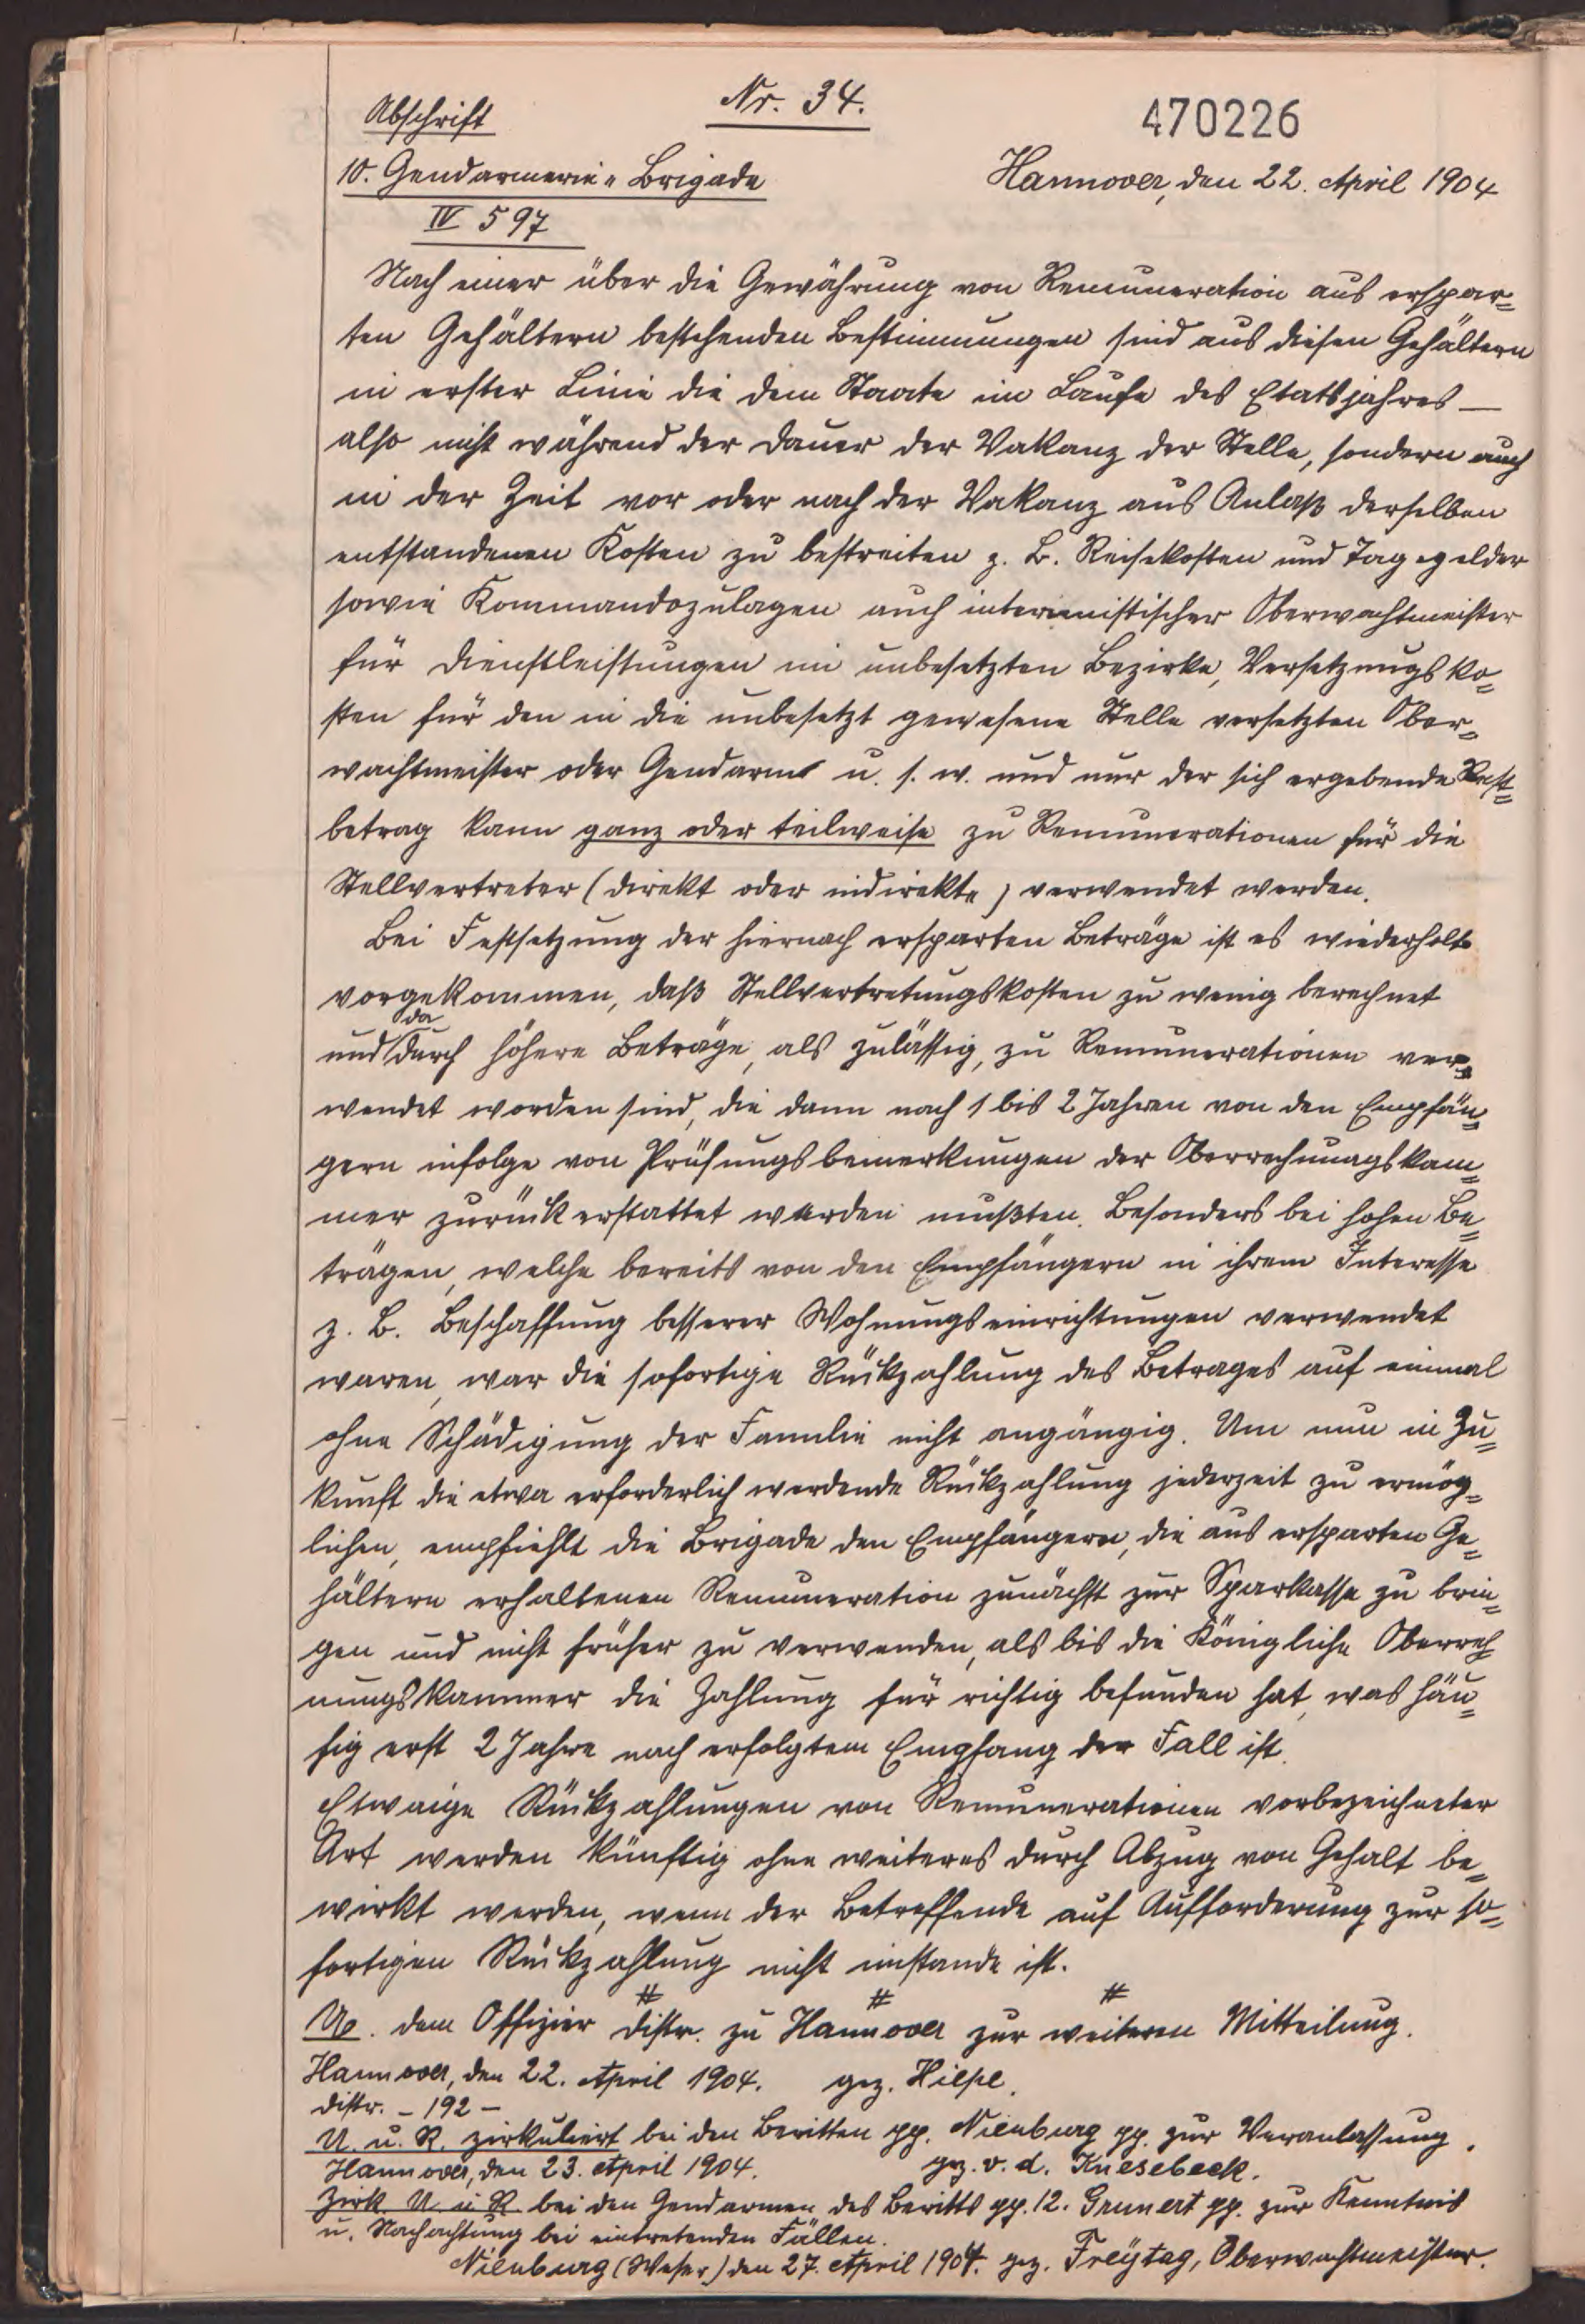 Abschrift
Nr. 34.
470226
10. Gendarmerie-Brigade
Hannover, den 22. April 1904
IV 597
Nach einer über die Gewährung von Remuneration aus erspar=
ten Gehältern bestehenden Bestimmungen sind aus diesen Gehältern
in erster Linie die dem Staate im Laufe des Etatsjahres —
also nicht während der Dauer der Vakanz der Stelle, sondern auch
in der Zeit vor oder nach der Vakanz aus Anlaß derselben
entstandenen Kosten zu bestreiten z. B. Reisekosten und Tagegelder
sowie Kommandozulagen auch interimistischer Oberwachtmeister
für Dienstleistungen im unbesetzten Bezirke, Versetzungsko=
sten für den in die unbesetzt gewesene Stelle versetzten Ober=
wachtmeister oder Gendarm u. s. w. und nur der sich ergebende Rest=
betrag kann ganz oder teilweise zu Remunerationen für die
Stellvertreter (direkt oder indirekte) verwendet werden.
Bei Festsetzung der hiernach ersparten Beträge ist es wiederholt
vorgekommen, daß Stellvertretungskosten zu wenig berechnet
und dadurch höhere Beträge, als zulässig, zu Remunerationen ver=
wendet worden sind, die dann nach 1 bis 2 Jahren von den Empfän=
gern infolge von Prüfungsbemerkungen der Oberrechnungskam=
mer zurückerstattet werden mußten. Besonders bei hohen Be=
trägen, welche bereits von den Empfängern in ihrem Interesse
z. B. Beschaffung besserer Wohnungseinrichtungen verwendet
waren, war die sofortige Rückzahlung des Betrages auf einmal
ohne Schädigung der Familie nicht angängig. Um nun in Zu=
kunft die etwa erforderlich werdende Rückzahlung jederzeit zu ermög=
lichen, empfiehlt die Brigade den Empfängern, die aus ersparten Ge=
hältern erhaltenen Remuneration zunächst zur Sparkasse zu brin=
gen und nicht früher zu verwenden, als bis die Königliche Oberrech
nungskammer die Zahlung für richtig befunden hat, was häu=
fig erst 2 Jahre nach erfolgtem Empfang der Fall ist.
Etwaige Rückzahlungen von Remunerationen vorbezeichneter
Art werden künftig ohne weiteres durch Abzug von Gehalt be=
wirkt werden, wenn der Betreffende auf Aufforderung zur so=
fortigen Rückzahlung nicht imstande ist.
# # #
U. dem Offizier Distr. zu Hannover zur weiteren Mitteilung.
Hannover, den 22. April 1904. gez. Hilpe.
Distr. - 192 -
U. u. R. zirkuliert bei den Beritten pp. Nienburg pp. zur Veranlassung.
Hannover, den 23. April 1904. gez. v. d. Knesebeck.
Zirk U. u R. bei den Gendarmen des Beritts pp. 12. Grunert pp. zur Kenntnis
u. Nachachtung bei eintretenden Fällen.
Nienburg (Weser) den 27. April 1904. gez. Freÿtag, Oberwachtmeister.